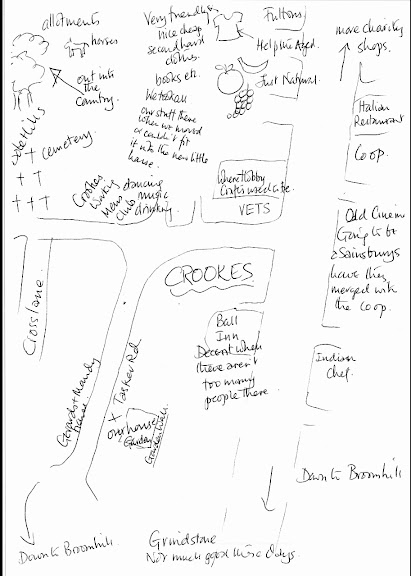 allotments
horses
out into
the
Country.
cemetery
Very friendly
nice cheap
second hand
clothes.
books etc.
We took all
our stuff there
when we moved
& couldn't fit
it into the new little
house.
Crookes
Working
Mens
Club
dancing
music
drinking.
Fultons
Help the Aged.
Just Natural.
where Hobby
Crafts used to be
VETS
more charity
shops.
Italian
Restaurant
Coop.
Odd Cinema
Going to be
a Sainsburys
have they
merged with
the Coop.
Indian
Chef.
Down to Broomhill
Cross Lane
CROOKES
Gerards + Mandy
house
Tasker Rd
our house
Garden
Ball
Inn
Decent when
there aren't
too many
people there.
Down to Broomhill.
Grindstone
Not much good these days.